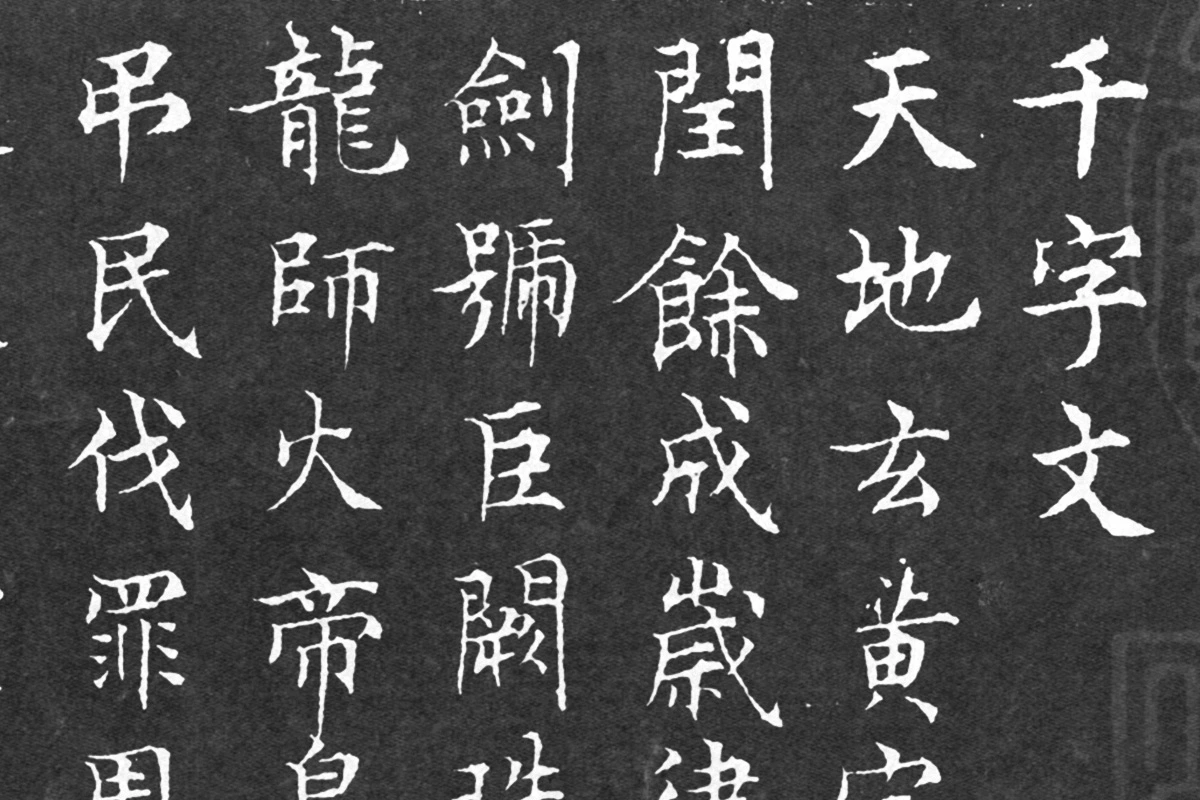 千字文
天地玄黄宇
閏餘成歲律
劍號巨闕珠
龍師火帝鳥
吊民伐罪周